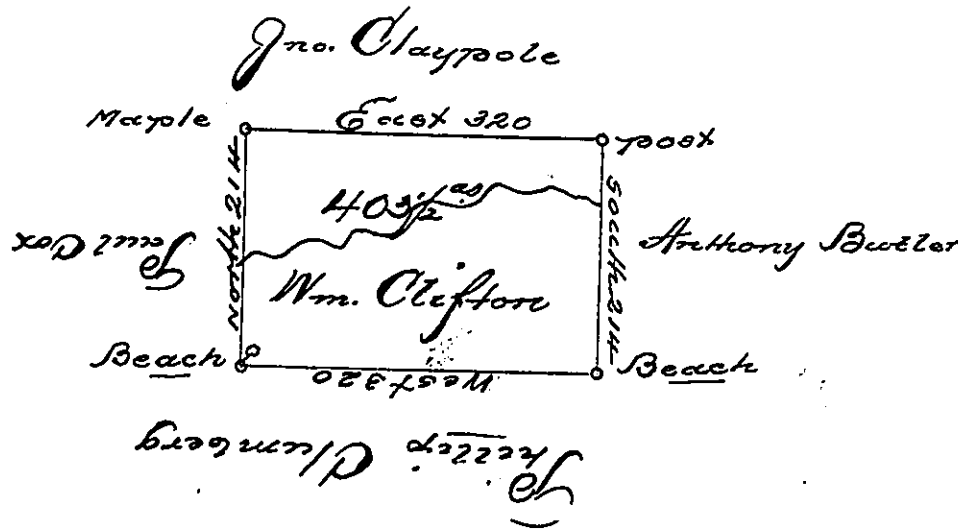 Jno. Claypole
Maple
East 320
post
North 214
403½ as
South 214
Paul Cox
Anthony Butler
Wm. Clifton
Beach
West 320
Beach
Phillip Clumberg